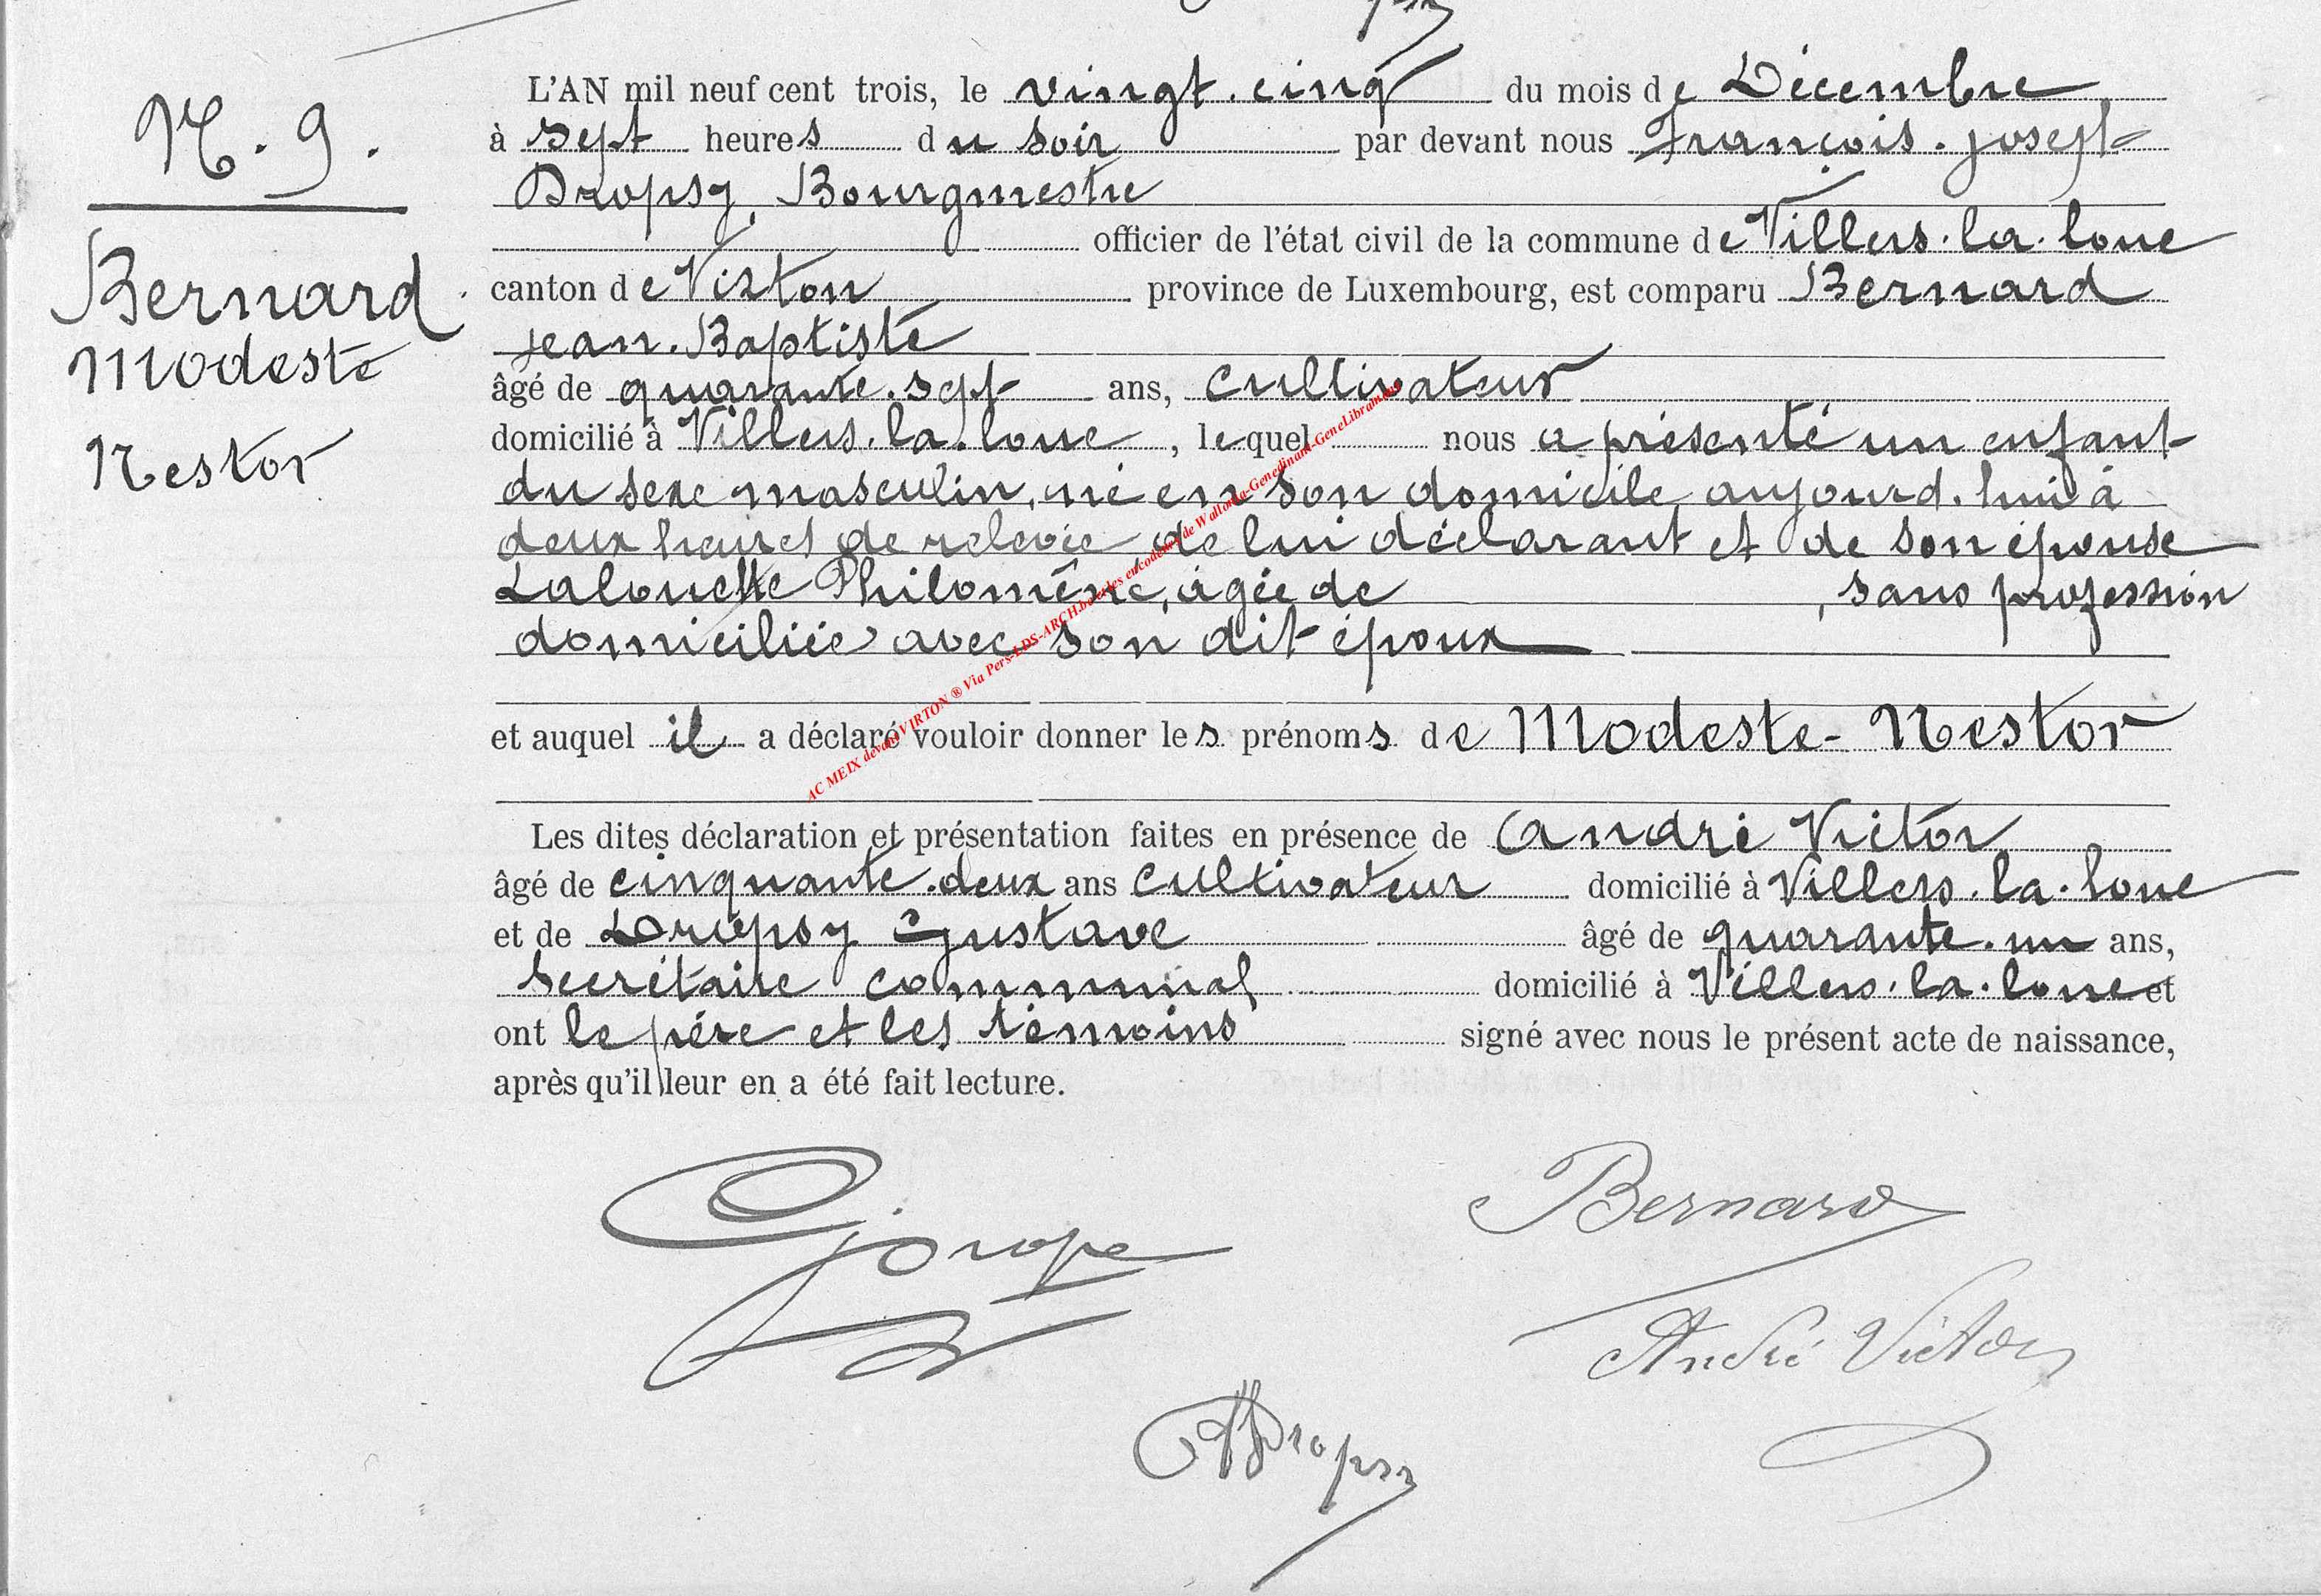 N. 9.
Bernard
Modeste
Nestor
L'AN mil neuf cent trois, le vingt-cinq du mois de Décembre
à sept heures du soir par devant nous François-joseph
Dropsy, Bourgmestre
officier de l'état civil de la commune de Villers-la-loue
canton de Virton province de Luxembourg, est comparu Bernard
jean-Baptiste
âgé de quarante-sept ans, cultivateur
domicilié à Villers-la-loue, lequel nous a présenté un enfant
du sexe masculin, né en son domicile aujourd'hui à
deux heures de relevée de lui déclarant et de son épouse
Lalouette Philomène, agée de , sans profession
domiciliée avec son dit époux
et auquel il a déclaré vouloir donner les prénoms de Modeste-Nestor
Les dites déclaration et présentation faites en présence de André Victor
âgé de cinquante-deux ans cultivateur domicilié à Villers-la-loue
et de Dropsy Gustave âgé de quarante-un ans,
secrétaire communal domicilié à Villers-la-loue et
ont le père et les témoins signé avec nous le présent acte de naissance,
après qu'il leur en a été fait lecture.
Bernard
André Victor
Dropsy
AC MEIX devant VIRTON ® Via Pers-LDS-ARCH.be et les encodeurs de Wallonia-Genedinant-GeneLibram